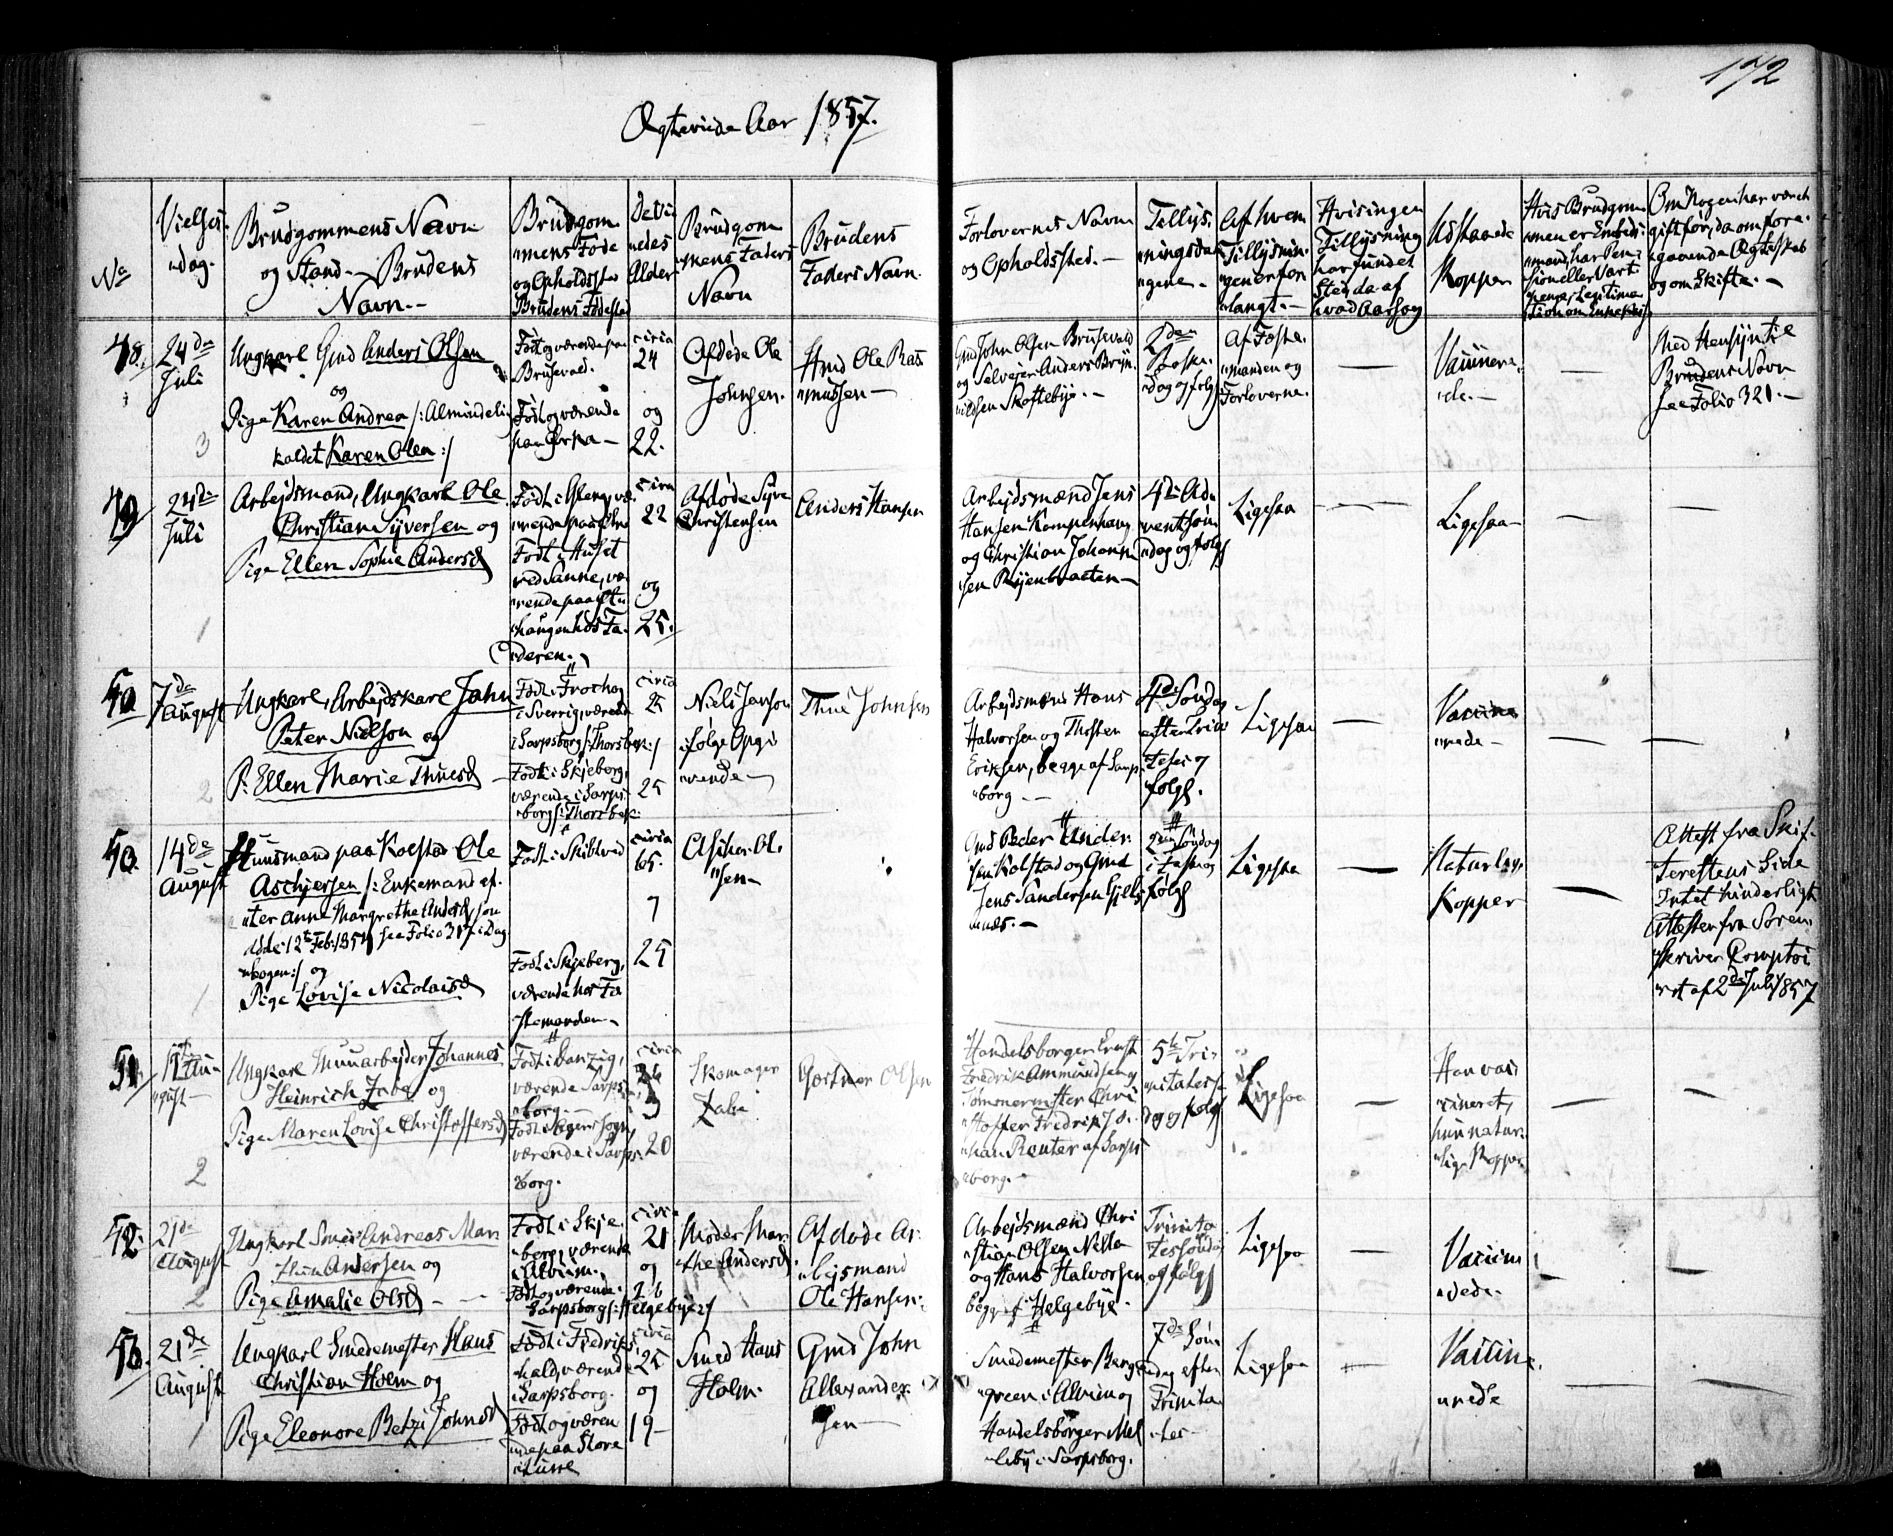 172
Ægteviede Aar 1857.
No
Vielses
dag.
Brudgommens Navn
og Stand. Brudens
Navn.
Brudgom
mens Føde
og Opholdssted
Brudens Fødested
Alder
Brudgom
mens Faders
Navn
Brudens
Faders Navn.
Forlovernes Navn
og Opholdssted.
Tillys
nings
gene.
Af hvem
Tillysnin
gen er for
langt.
Hvis ingen
Tillysning
har fundet
Sted da af
hvad Aarsag
Kopper
Hvis Brudgom
men er
mand, har Pen
sion eller
Om Nogen har været
gift før, da om fore
gaaende Ægteskab
og om Skifte.
48.
24de
Juli
3
Ungkarl Gmd Anders Olsen
og
Pige Karen Andrea /: Almindeli
kaldet Karen Olea :/
Født og værende paa
Brusevold.
Født og værende
circa
24
og
22.
Afdøde Ole
Johnsen.
Hmd Ole Ras
mussen
Gmd John Olsen Brusevold
og Selveier Anders Bryn
ildsen Skoftebye.
2den
Paaske
dag og følg
Af Føste
manden og
Forloverne.
Vaccinere
de.
Med Hensyn til
Brudens Navn
see Folio 321.
49
24de
Juli
1
Arbejdsmand, Ungkarl Ole
Christian Syversen og
Pige Ellen Sophie Andersd
Født i Huset
ved Sanne, væ
rende paa
haugen hos Fa
deren.
circa
22
og
25.
Afdøde Syve
Christensen
Anders Hansen
Arbejdsmænd Jens
Hansen Kampenhaug
og Christian Johann
sen
4de Ad
ventsøn
dag og følg
Ligesaa
Ligesaa
7de
August
2
Ungkarl, Arbejdskarl John
Peter Nielson og
P. Ellen Marie Thuesd
i Sverrig, værende
i Sarpsborg /: Thorsbek :/
Født i Skjeberg,
værende i Sarps
borg /: Thorsbek
circa
25
25
Niels Janson
ifølge Opgi
vende
Thue Johnsen
Arbejdsmænd Hans
Halvorsen og Thosten
Eriksen, begge af Sarps
borg
4de Søndag
efter Trini
tatis og
følg.
Ligesaa
Vaccine
rede
50.
14de
August
1
Huusmand paa Kolstad Ole
Aschjersen /: Enkemand ef
ter Anne Margrethe Andersd
døde 12te Feb. 1857 see Folio 317 i Dag
bogen :/ og
Pige Lovise Nicolaisd
Født i Skibtved
Født i Skjeberg,
værende hos Fæ
stemanden
circa
65.
25
Aschier Ol
sen
Gmd Peder Ander
sen Kolstad og Gmd
Jens Sandersen
næs.
2den Søndag
i Faste og
følg
Ligesaa
Naturlig
Kopper
Attest fra Skif
terettens Side
Intet hinderligt
Attest er fra Soren
skriver Comptoi
ret af 2den July 1857
51.
gust
2
Ungkarl Muurarbejder Johannes
Heinrich Zabe og
Pige Maren Lovise Christoffersd
Født i Danzig,
værende i Sarps
borg.
værende i Sarps
borg.
circa
20
Skomager
Zabe
Gartner Olsen
Handelsborger Ernst
Fredrik Ammundsen og
Tømmermester Chri
stoffer Fredrik Jo
han Reuter af Sarps
borg.
5te Tri
nitatissøn
dag og følg
Ligesaa
Han vac
cineret,
hun natur
lige Kopper
52.
21de
August
2
Ungkarl Smed Andreas Mar
thin Andersen og
Pige Amalie Olsd
Født i Skje
berg, værende
i Alvim.
Født og værende i
Sarpsborg /: Helgebye :/
circa
21
og
26
Moder Mar
the Andersd.
Afdøde Ar
bejsmand
Ole Hansen
Arbejdsmænd Chri
stian Olsen
og Hans Halvorsen
begge af Helgebye.
Trinita
tessøndag
og følg
Ligesaa
Vaccine
rede.
53.
21de
August
1
Ungkarl Smedemester Hans
Christian Holm og
Pige Eleonore Betzi Johnsd
Født i Fredriks
hald, værende
i Sarpsborg.
Født og væren
de paa Store
Tune
circa
25
og
19
Smed Hans
Holm.
Gmd John
Allexander
sen
Smedemester Berg
green i Alvim og
Handelsborger Mel
leby i Sarpsborg.
7de Søn
dag efter
Trinita
tes
Ligesaa
Vaccine
rede